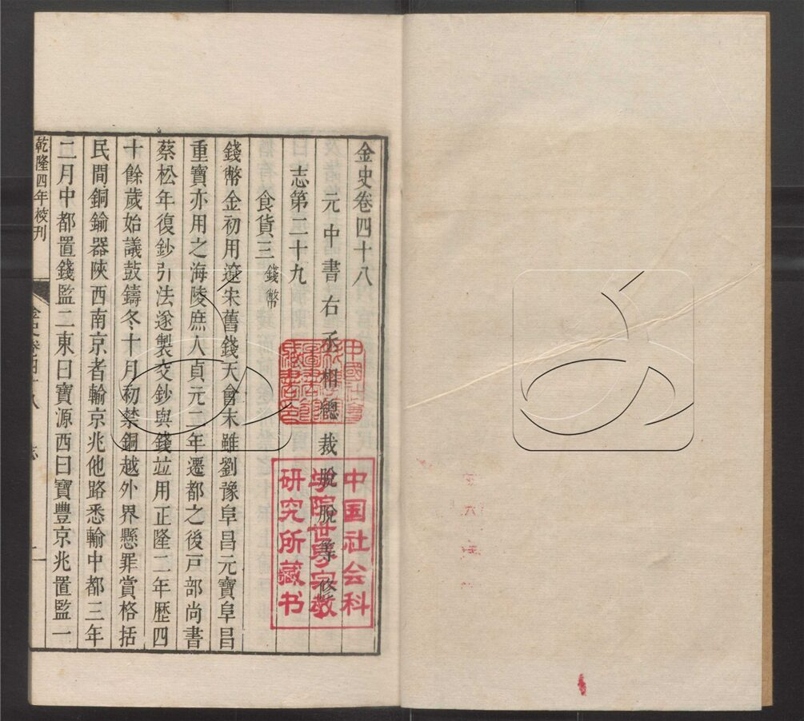 金史卷四十八
元中書右丞相總裁脫脫等修
志第二十九
食貨三 錢幣
錢幣金初用遼宋舊錢天會末雖劉豫阜昌元寶阜昌
重寶亦用之海陵庶人貞元二年遷都之後戸部尚書
蔡松年復鈔引法遂製交鈔與錢竝用正隆二年歷四
十餘歲始議鼓鑄冬十月初禁銅越外界懸罪賞格括
民間銅鍮器陝西南京者輸京兆他路悉輸中都三年
二月中都置錢監二東曰寶源西曰寶豐京兆置監一
乾隆四年校刊
金史卷四十八 志 一
中国社会科
学院世界宗教
研究所藏书